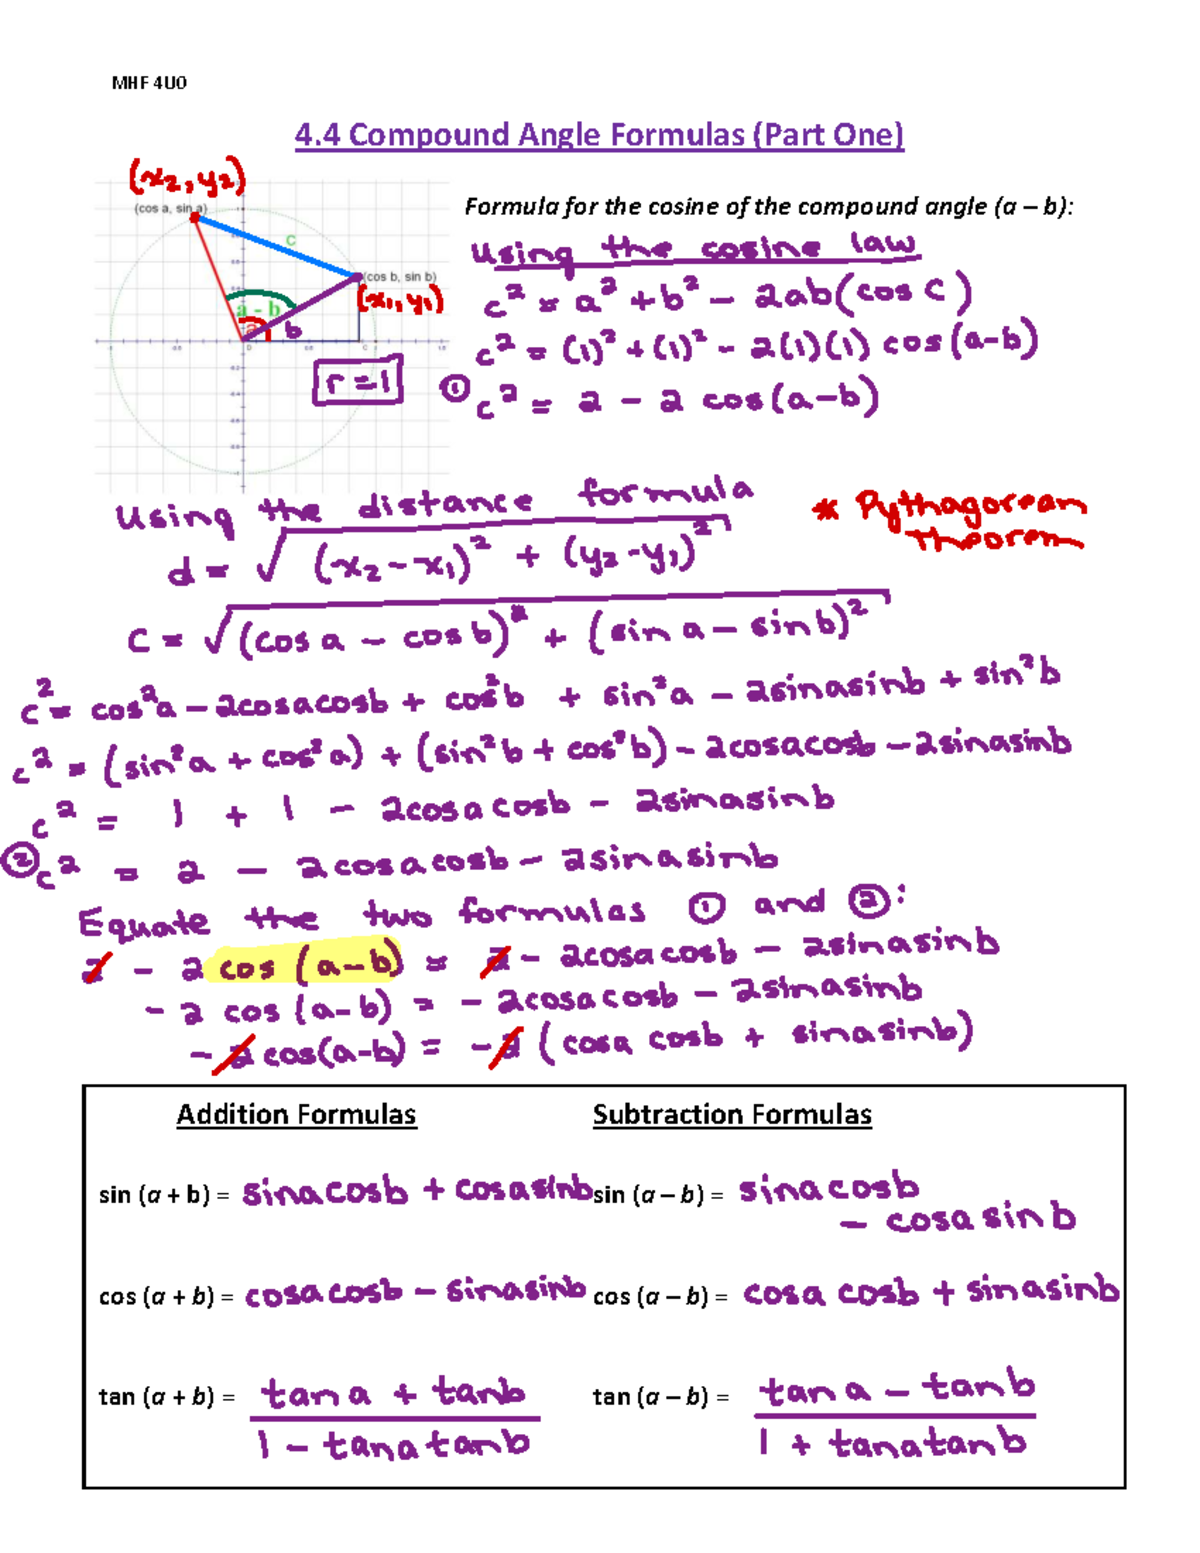 MHF 4U0
4.4 Compound Angle Formulas (Part One)
(x₂, y₂)
(cos a, sin a)
c
(cos b, sin b)
(x₁, y₁)
a - b
a
b
r = 1
Formula for the cosine of the compound angle (a – b):
Using the cosine law
c² = a² + b² - 2ab(cos C)
c² = (1)² + (1)² - 2(1)(1) cos(a-b)
① c² = 2 - 2 cos(a-b)
Using the distance formula
* Pythagorean
theorem
d = √(x₂ - x₁)² + (y₂ - y₁)²
C = √(cos a - cos b)² + (sin a - sin b)²
c² = cos²a - 2cosacosb + cos²b + sin²a - 2sinasinb + sin²b
c² = (sin²a + cos²a) + (sin²b + cos²b) - 2cosacosb - 2sinasinb
c² = 1 + 1 - 2cosacosb - 2sinasinb
② c² = 2 - 2cosacosb - 2sinasinb
Equate the two formulas ① and ②:
2 - 2 cos (a-b) = 2 - 2cosacosb - 2sinasinb
- 2 cos (a-b) = - 2cosacosb - 2sinasinb
- 2 cos(a-b) = -2 (cosa cosb + sinasinb)
Addition Formulas Subtraction Formulas
sin (a + b) = sinacosb + cosasinb sin (a – b) = sinacosb
- cosasinb
cos (a + b) = cosacosb - sinasinb cos (a – b) = cosa cosb + sinasinb
tan (a + b) = tana + tanb tan (a – b) = tana - tanb
1 - tanatanb 1 + tanatanb